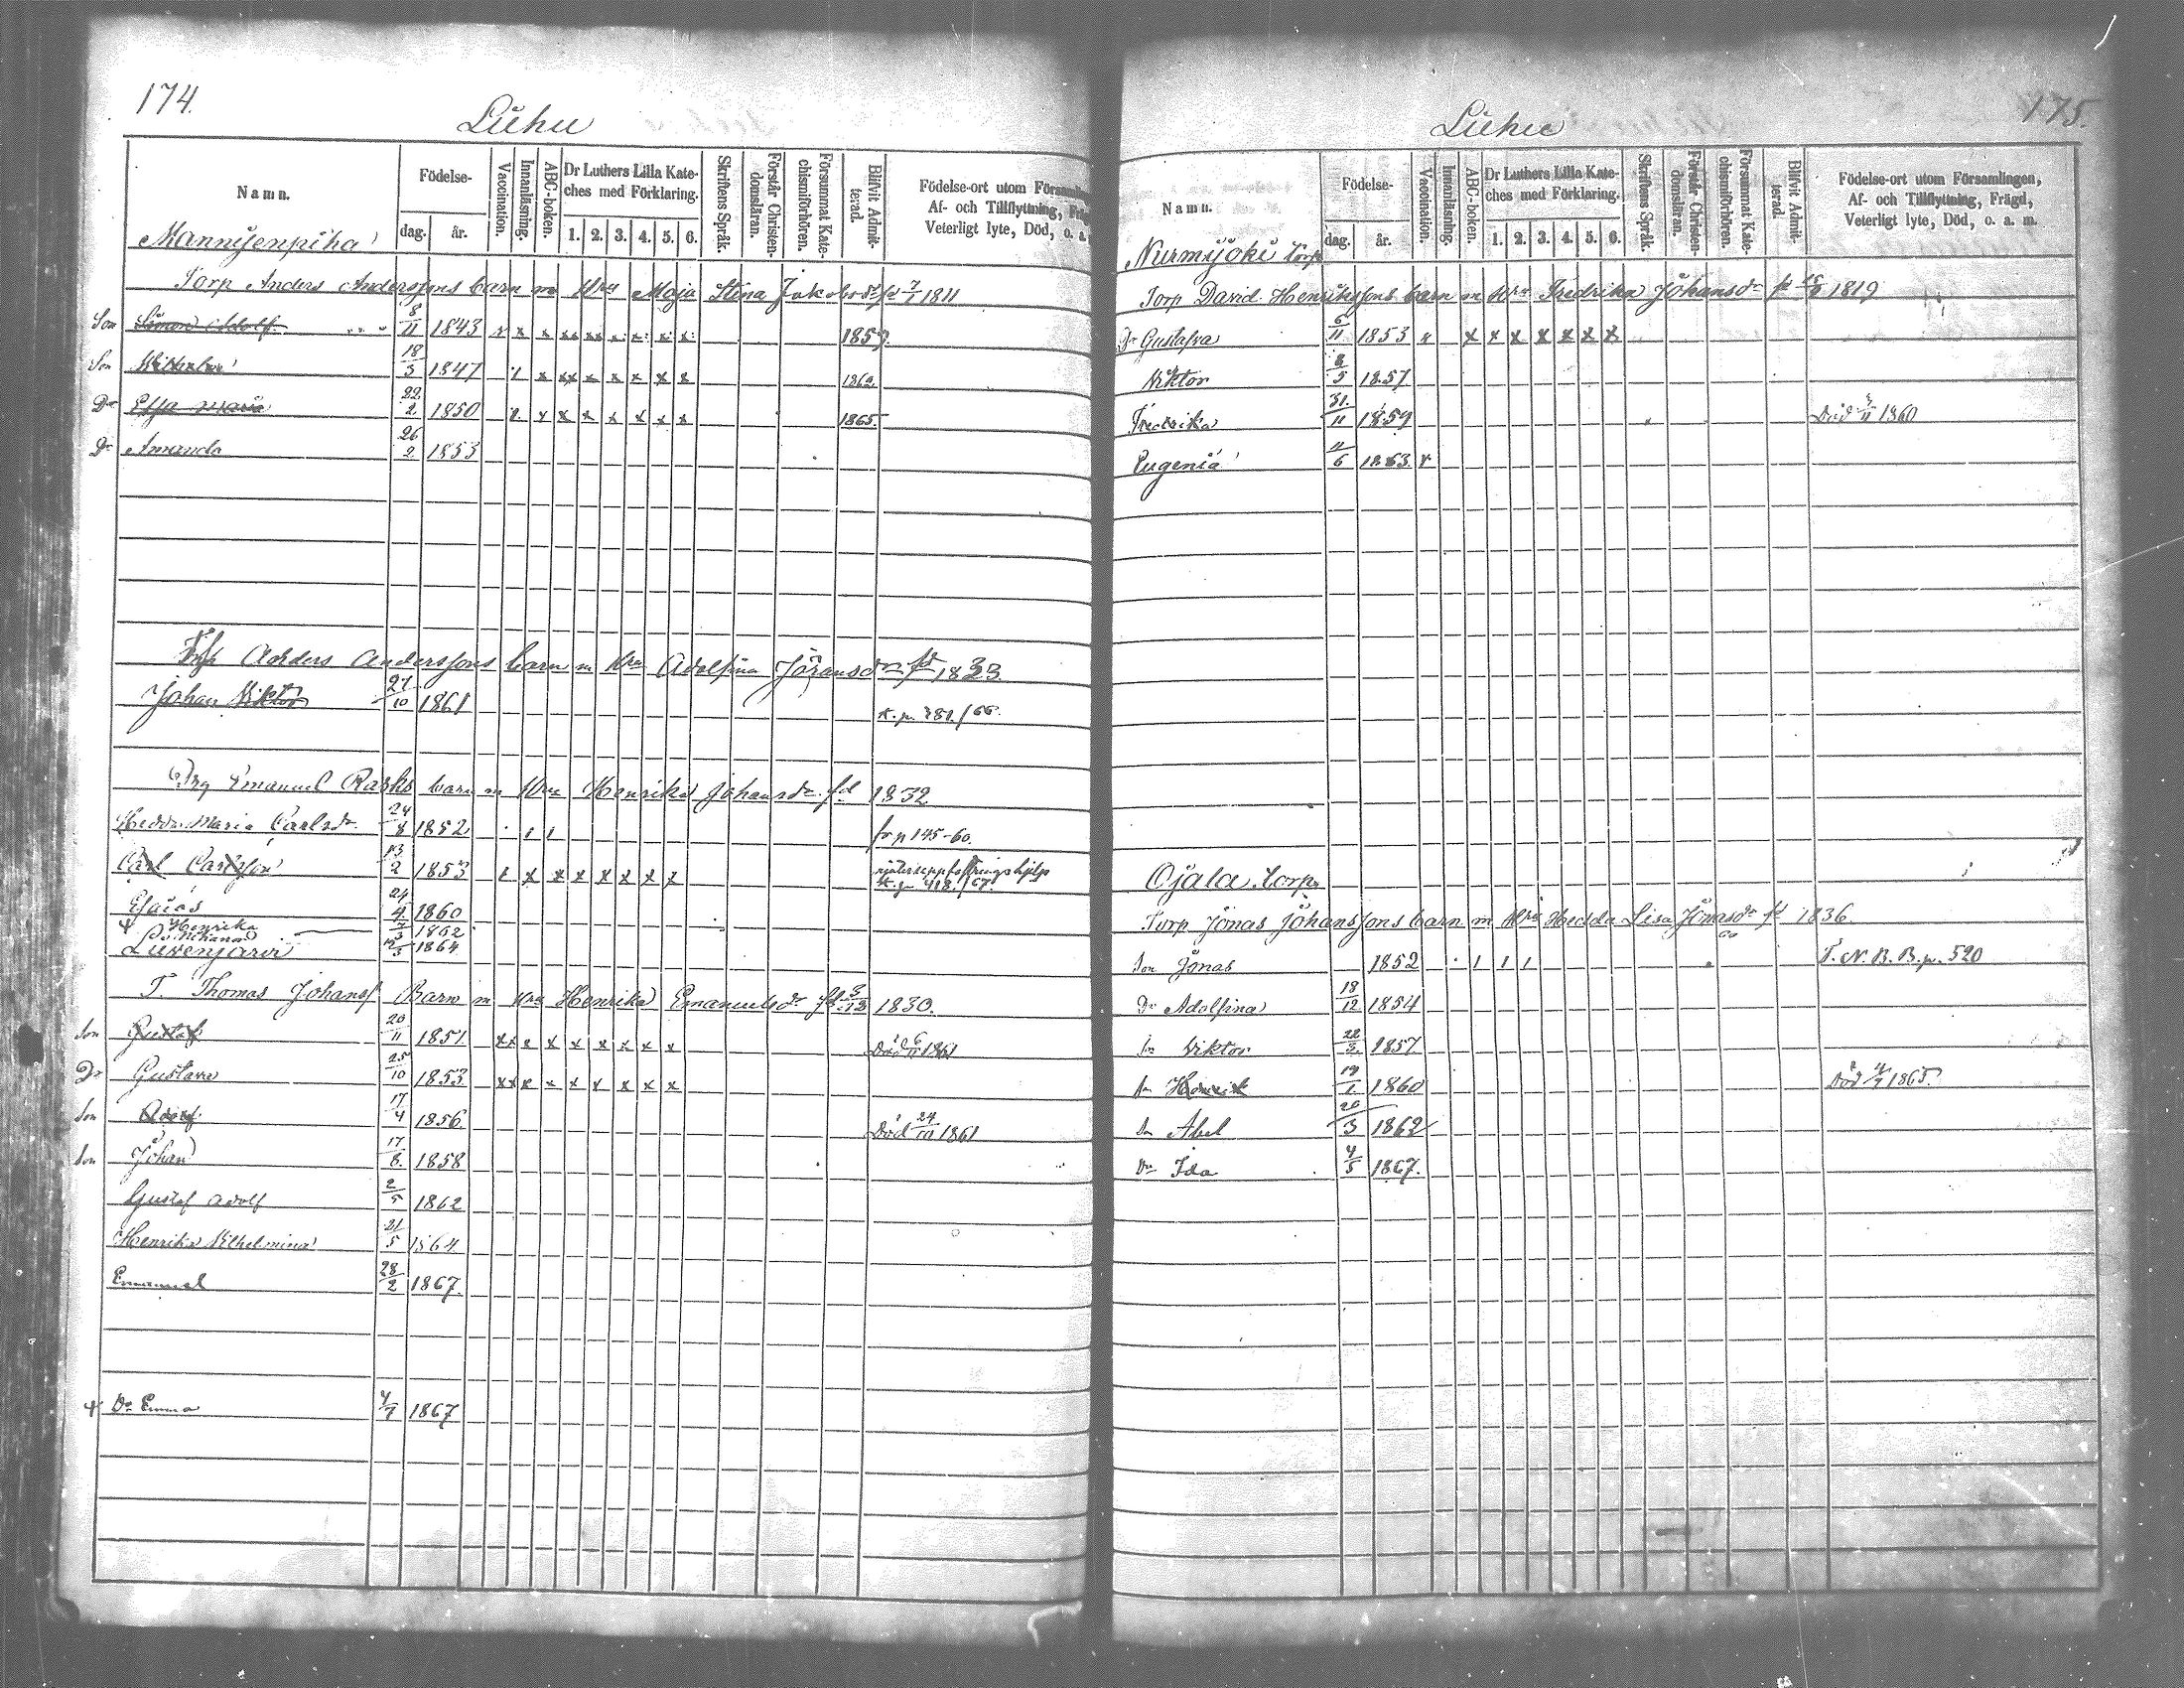 174.
Luhu
Namn. Födelse- dag. år. Vaccination. Innanläsning. ABC-boken. Dr Luthers Lilla Kateches med Förklaring. 1. 2. 3. 4. 5. 6. Skriftens Språk. Förstår Christendomsläran. Försummat Katechismiförhören. Blifvit Admitterad. Födelse-ort utom Församlin Af- och Tillflyttning, Fräg Veterligt lyte, Död, o. a.
Torp Anders Anderssons barn m Hru Maja Stina Jakobsdr fd 7/1 1811
Son Simon Adolf 8/11 1843 x x x xx xx x x x x 1859
Son Wilhelm 18/3 1847 x xx x x x x x 1862
Dr Efja Maria 22/2 1850 x x x x x x x 1865
Dr Amanda 26/2 1853
Anders Anderssons barn m Hru Adolfina 1833
Johan Viktor 27/10 1861
Emanuel barn m Hru Henrika Johansdr fd 1832
Hedda Maria Carlsdr 24/8 1852 fr p 145-60.
Carl Carlsson 13/2 1853 x x x x x x x
Esaias 1860
Henrika 1862
1864
T. Thomas Johanss Barn m Hru Henrika Emanuelsdr fd 1830.
Son Gustaf 20/11 1851 xx x x x x x x x Död 1861
Dr Gustava 25/10 1853 xx x x x x x x x
Son Adolf 17/4 1856 Död 1861
Son Johan 17/8 1858
Gustaf Adolf 2/5 1862
Henrika Vilhelmina 21/5 1864
Emanuel 28/2 1867
Dr Emma 1867
175.
Luhu
Namn. Födelse- dag. år. Vaccination. Innanläsning. ABC-boken. Dr Luthers Lilla Kateches med Förklaring. 1. 2. 3. 4. 5. 6. Skriftens Språk. Förstår Christendomsläran. Försummat Katechismiförhören. Blifvit Admitterad. Födelse-ort utom Församlingen, Af- och Tillflyttning, Frägd, Veterligt lyte, Död, o. a. m.
Nurmijoki torp
Torp David Henrikssons barn m Hru Fredrika Johansdr fd 1819
Dr Gustafva 6/11 1853 x x x x x x x
Viktor 8/5 1857
Fredrika 31/11 1859 Död 1860
Eugenia 11/6 1863
Ojala torp
Torp Jonas Johanssons barn m Hru Hedda Lisa Jönasdr fd 1836.
Son Jonas 1852 T. N. B. B. p. 520
Dr Adolfina 18/12 1854
Sn Viktor 22/3 1857
Sn Henrik 19/1 1860 Död 1865.
Sn Abel 20/3 1862
Dr Ida 4/5 1867.